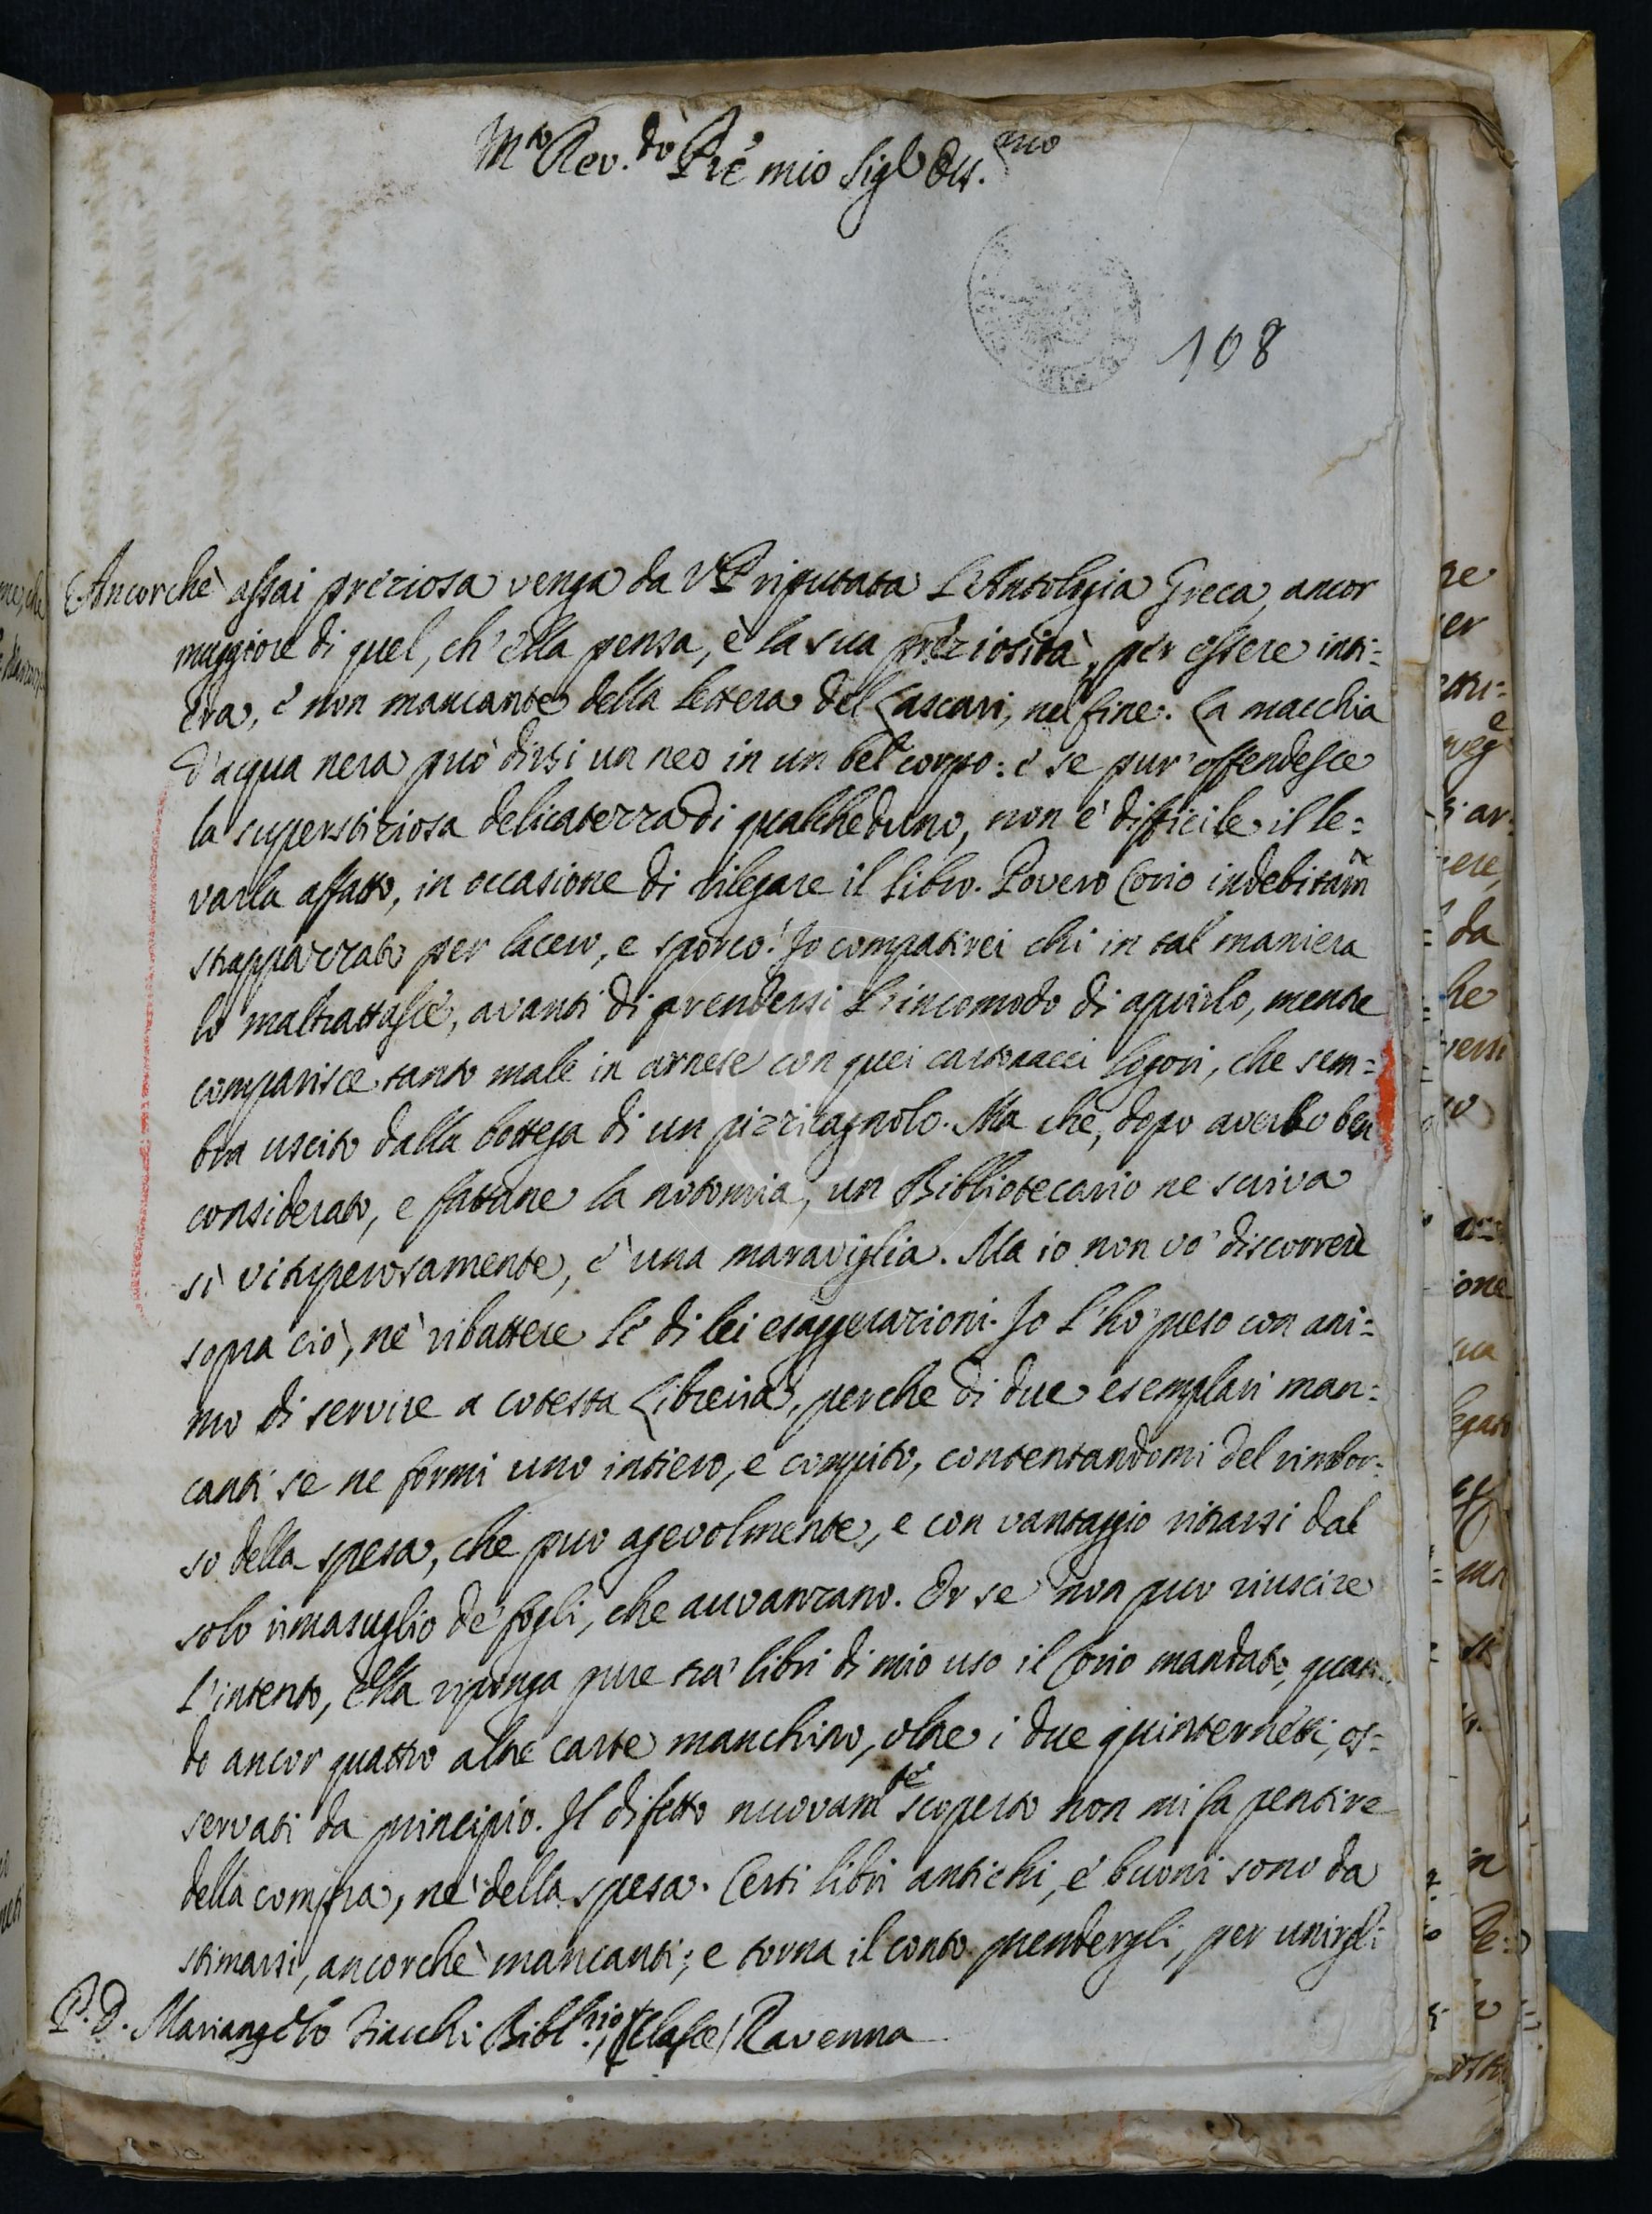 M.to Rev.do Pre mio Sig.e Oss.mo
108
Ancorchè assai preziosa venga da V.P. riputata l'Antologia Greca, ancor
maggiore di quel, ch'ella pensa, è la sua preziosità, per essere inti=
era, e non mancante della lettera del Lascari, nel fine. La macchia
d'acqua nera può dirsi un neo in un bel corpo: e se pur offendesse
la superstiziosa delicatezza di qualcheduno, non è difficile il le=
varla affatto, in occasione di rilegare il libro. Povero Corio indebitam̃
strappazzato per lacero, e sporco! Io compatirei chi in tal maniera
lo maltrattasse, avanti di prendersi l'incomodo di aprirlo, mentre
comparisce tanto male in arnese con quei cartonacci logori, che sem=
bra uscito dalla bottega di un pizzicagnolo. Ma che, dopo averlo ben
considerato, e fattane la notomia, un Bibliotecario ne scriva
sì vituperosamente, è una maraviglia. Ma io non vò discorrere
sopra ciò, nè ribattere le di lei esaggerazioni. Io l'hò preso con ani=
mo di servire a cotesta Libreria, perche di due esemplari man=
canti se ne formi uno intiero, e compito, contentandomi del rimbor=
so della spesa, che può agevolmente, e con vantaggio ritrarsi dal
solo rimasuglio de' fogli, che avvanzano. Or se non può riuscire
l'intento, ella riponga pure tra' libri di mio uso il Corio mandato, quan=
do ancor quattro altre carte manchino, oltre i due quinternetti, os=
servati da principio. Il difetto nuovam.te scoperto non mi fa pentire
della compra, nè della spesa. Certi libri antichi, e buoni sono da
stimarsi, ancorchè mancanti; e torna il conto prendergli, per unirgli
P. D. Mariangelo Fiacchi Bibl.rio (Classe) Ravenna